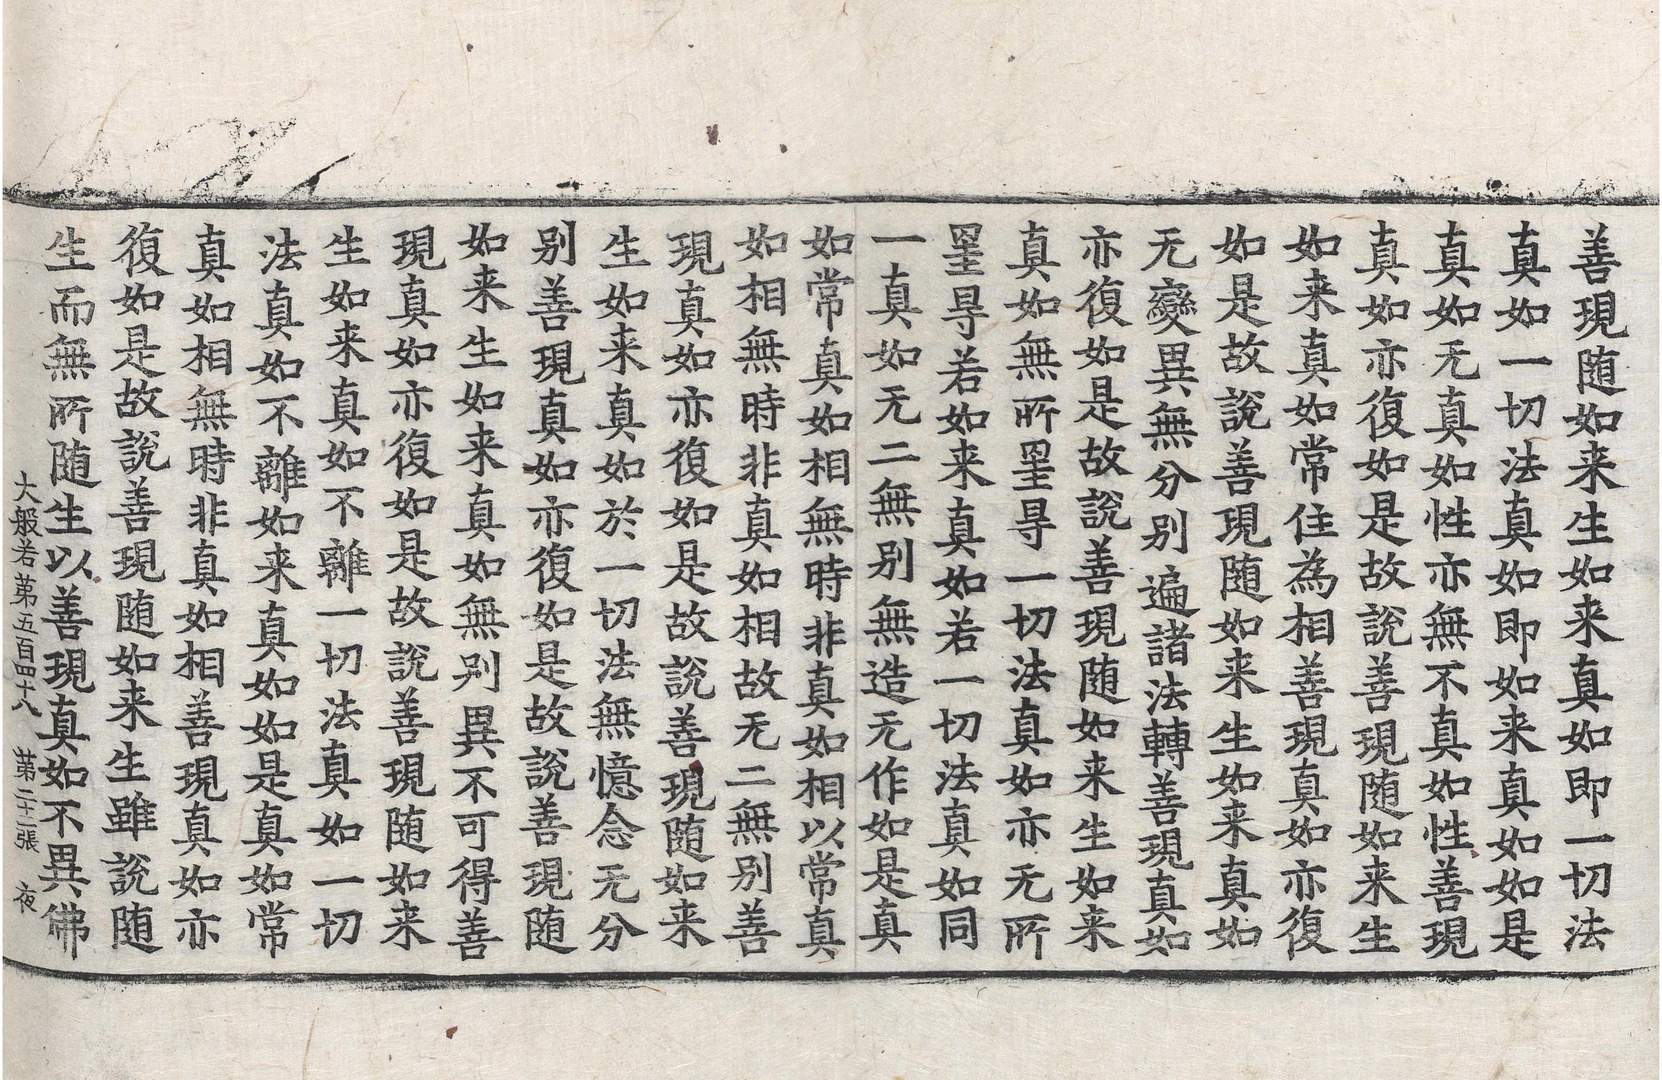 善現随如来生如来真如即一切法
真如一切法真如即如来真如如是
真如无真如性亦無不真如性善現
真如亦復如是故說善現随如来生
如来真如常住為相善現真如亦復
如是故說善現随如来生如来真如
无變異無分别遍諸法轉善現真如
亦復如是故說善現随如来生如来
真如無所罣㝵一切法真如亦无所
罣㝵若如来真如若一切法真如同
一真如无二無别無造无作如是真
如常真如相無時非真如相以常真
如相無時非真如相故无二無别善
現真如亦復如是故說善現随如来
生如来真如於一切法無憶念无分
别善現真如亦復如是故說善現随
如来生如来真如無别異不可得善
現真如亦復如是故說善現随如来
生如来真如不離一切法真如一切
法真如不離如来真如如是真如常
真如相無時非真如相善現真如亦
復如是故說善現随如来生雖說随
生而無所随生以善現真如不異佛
大般若第五百四十八　第二十二張　夜